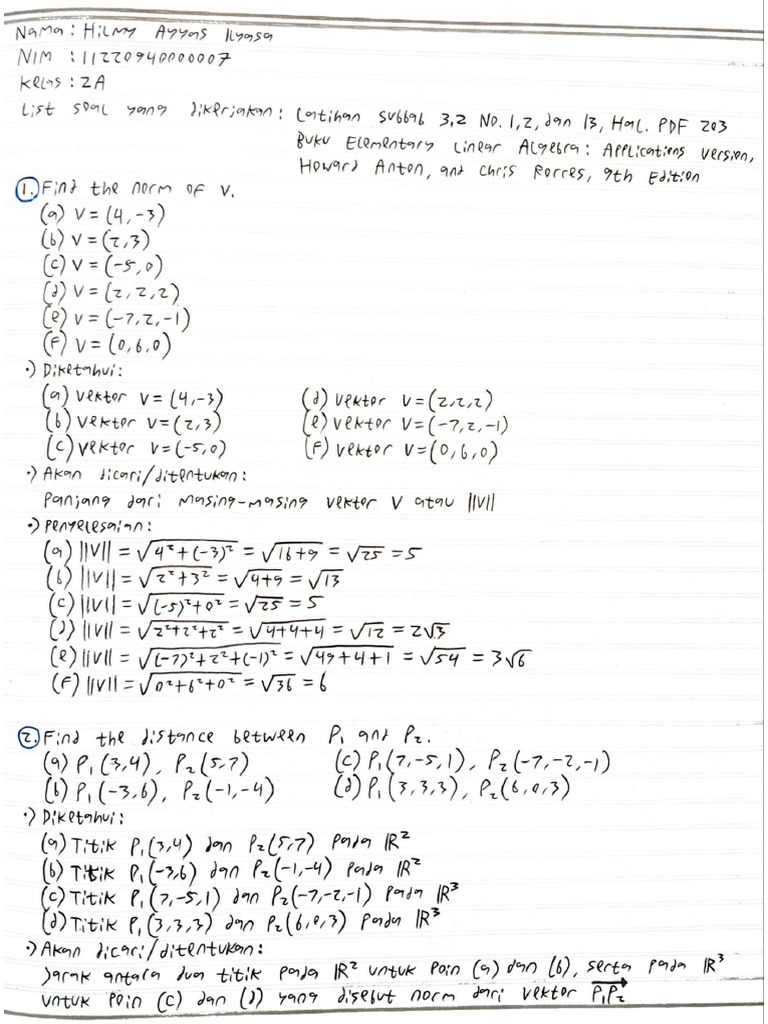 Nama : Hilmy Ayyas Ilyasa
NIM : 11220940000007
Kelas : 2A
List soal yang dikerjakan : Latihan Subbab 3.2 No. 1, 2, dan 13, Hal. PDF 203
Buku Elementary Linear Algebra : Applications Version,
Howard Anton, and Chris Rorres, 9th Edition
1. Find the norm of v.
(a) v = (4, -3)
(b) v = (2, 3)
(c) v = (-5, 0)
(d) v = (2, 2, 2)
(e) v = (-7, 2, -1)
(f) v = (0, 6, 0)
•) Diketahui :
(a) vektor v = (4, -3) (d) vektor v = (2, 2, 2)
(b) vektor v = (2, 3) (e) vektor v = (-7, 2, -1)
(c) vektor v = (-5, 0) (f) vektor v = (0, 6, 0)
•) Akan dicari/ditentukan :
Panjang dari masing-masing vektor v atau ||v||
•) Penyelesaian :
(a) ||v|| = √(4² + (-3)²) = √(16 + 9) = √25 = 5
(b) ||v|| = √(2² + 3²) = √(4 + 9) = √13
(c) ||v|| = √((-5)² + 0²) = √25 = 5
(d) ||v|| = √(2² + 2² + 2²) = √(4 + 4 + 4) = √12 = 2√3
(e) ||v|| = √((-7)² + 2² + (-1)²) = √(49 + 4 + 1) = √54 = 3√6
(f) ||v|| = √(0² + 6² + 0²) = √36 = 6
2. Find the distance between P₁ and P₂.
(a) P₁(3, 4), P₂(5, 7) (c) P₁(7, -5, 1), P₂(-7, -2, -1)
(b) P₁(-3, 6), P₂(-1, -4) (d) P₁(3, 3, 3), P₂(6, 0, 3)
•) Diketahui :
(a) Titik P₁(3, 4) dan P₂(5, 7) pada ℝ²
(b) Titik P₁(-3, 6) dan P₂(-1, -4) pada ℝ²
(c) Titik P₁(7, -5, 1) dan P₂(-7, -2, -1) pada ℝ³
(d) Titik P₁(3, 3, 3) dan P₂(6, 0, 3) pada ℝ³
•) Akan dicari/ditentukan :
Jarak antara dua titik pada ℝ² untuk poin (a) dan (b), serta pada ℝ³
untuk poin (c) dan (d) yang disebut norm dari vektor P₁P₂→